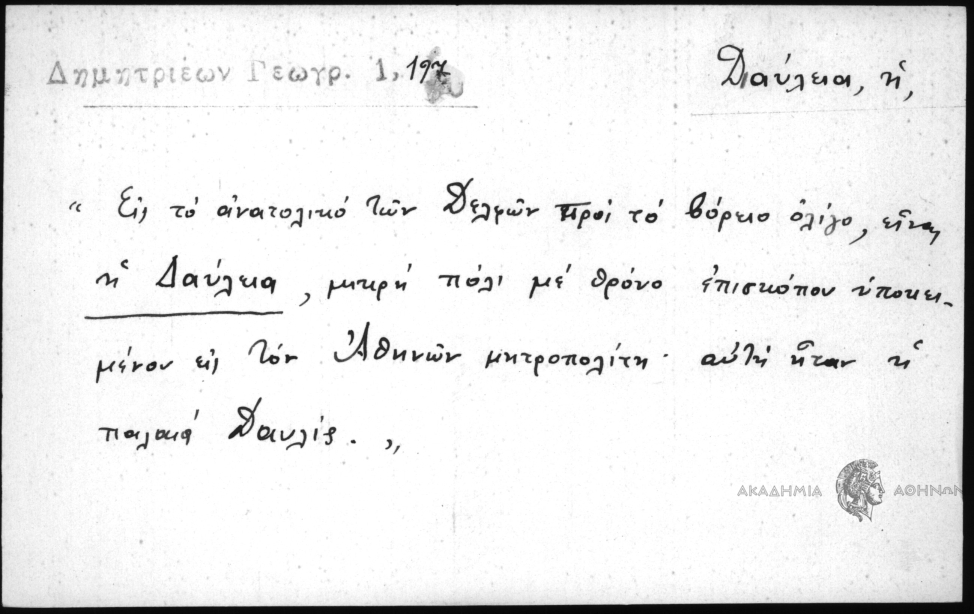 Δημητριέων Γεωγρ. 1, 197
Δαύλεια, ἡ,
“ Εἰς τό ἀνατολικό τῶν Δελφῶν πρός τό βόρειο ὀλίγο, εἶναι
ἡ Δαύλεια, μικρή πόλι μέ θρόνο ἐπισκόπου ὑποκει-
μένου εἰς τόν Ἀθηνῶν μητροπολίτη· αὐτή ἦταν ἡ
παλαιά Δαυλίς. „
ΑΚΑΔΗΜΙΑ ΑΘΗΝΩΝ